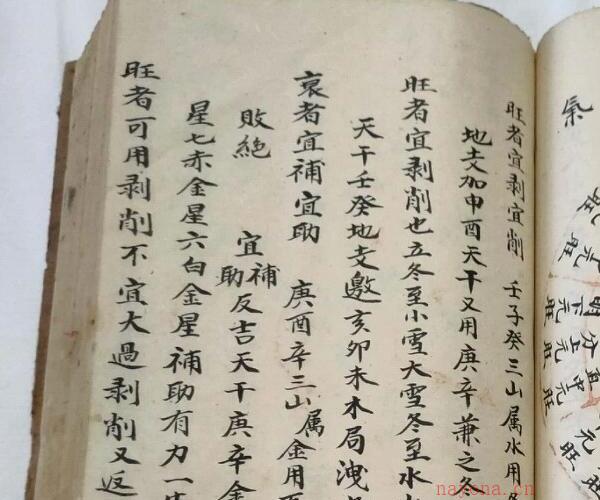 氣
旺者宜剥宜削 壬子癸三山属水用
地支加申酉天干又用庚辛兼之冬
旺者宜剥削也立冬至小雪大雪冬至水
天干壬癸地支邀亥卯未木局洩
衰者宜補宜助 庚酉辛三山属金用
敗絶 宜補助反吉天干庚辛金
星七赤金星六白金星補助有力一
旺者可用剥削不宜大過剥削又返
nayona.cn